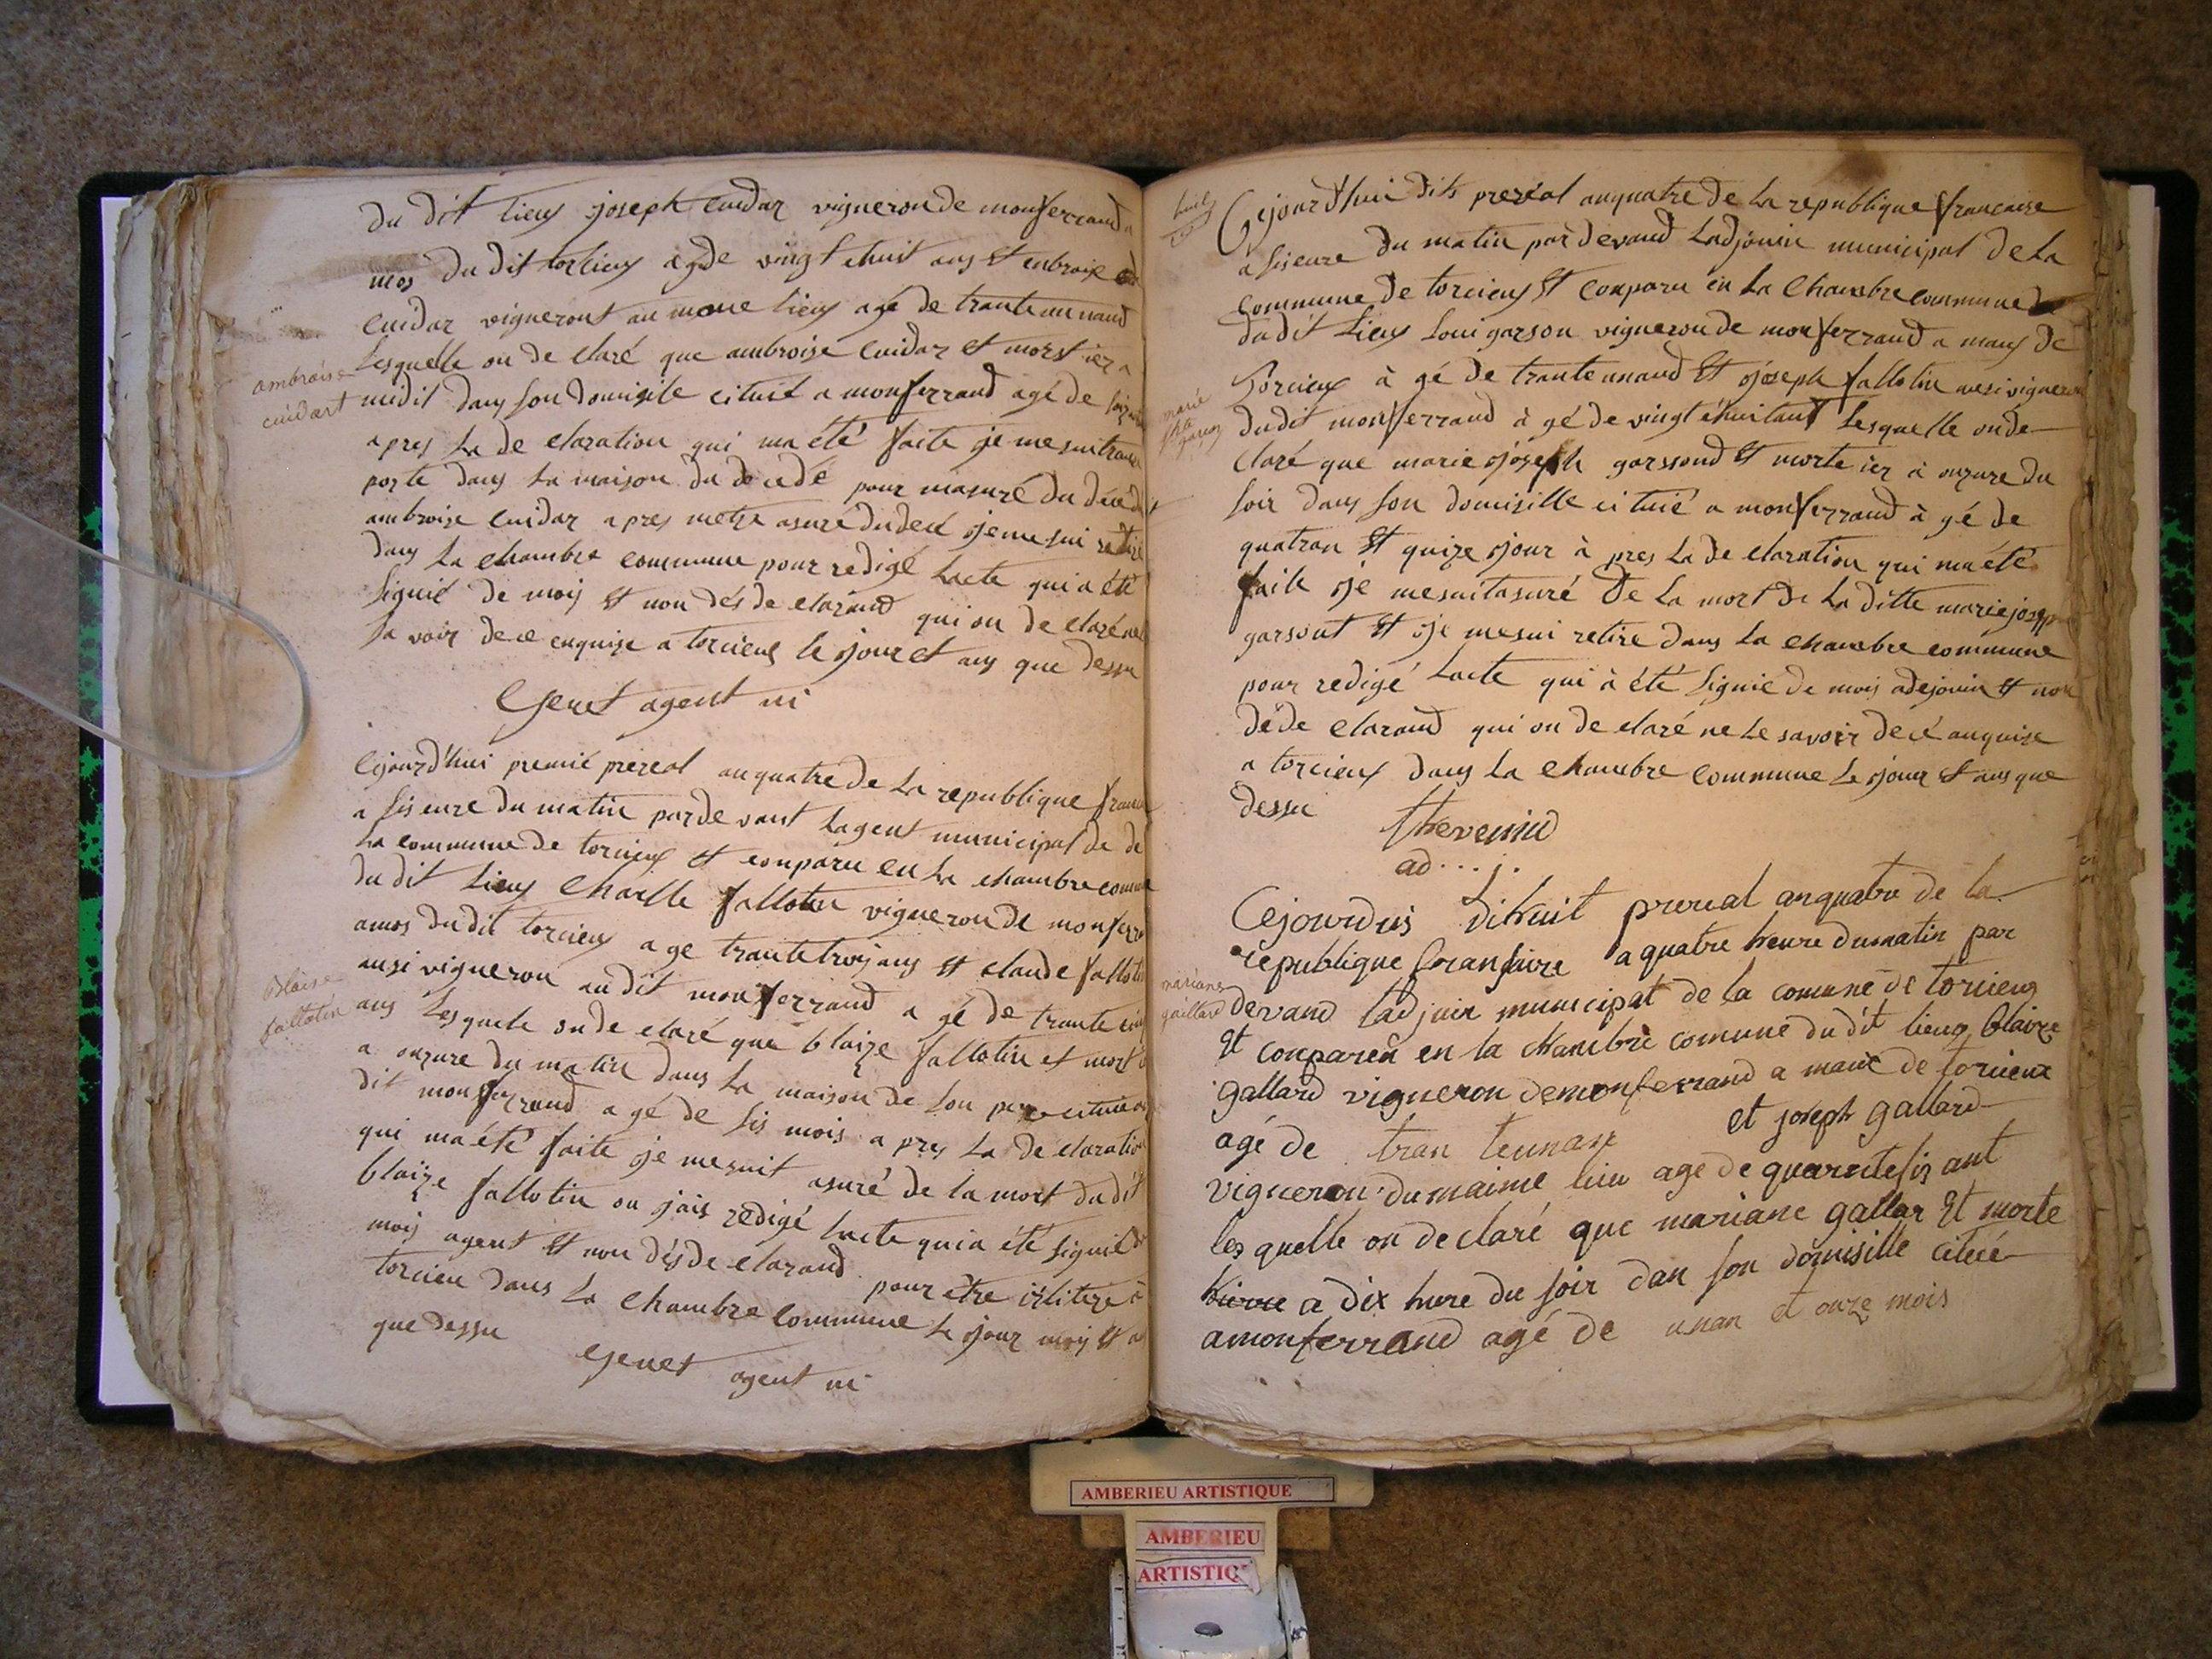 du dit lieux joseph cuidar vigneron de monferrand a
mos du dit torcieux agde vingt ehuit ans et enbroise
cuidar vigneront au meme lieux agé de trante un nand
Lesquelle on de claré que ambroise cuidar et morst ier a
ambroise
cuidart
midit dans son domisile cituié a monferrand agé de
apres La de claration qui ma été faite je me suitrans
porte dans La maison du de cedé pour masuré du deced
ambroise cuidar apres metre asuré dudecé je me sui retire
dans La chambre commune pour redigé Lacte qui a été
Signié de mois et non dés de clarand qui on de claré ne
Sa voir de ce enquise a torcieux le jour et ans que dessu
Genet agent m
Cejourd'hui premié prereal anquatre de La republique franc
a sis eure du matin parde vant Lagent municipal de de
La commune de torcieux et conparu en La chambre comune
du dit Lieux Charlle fallotin vigneron de monferra
amos du dit torcieux age trante trois ans et claude fallotin
ausi vigneron au dit monferrand a gé de trante cinq
Blaise
fallotin
ans Lesquele on de claré que blaize fallotin et mort
a onzure du matin dans La maison de son pere cituié au
dit monferrand agé de sis mois apres La de claration
qui ma été faite je mesuit asuré de la mort du dit
blaize fallotin ou jais redigé Lacte qui a été signié de
mois agent et non dés de clarand pour être islitere a
torcieu dans La Chambre Commune Le jour mois et an
que dessu
Genet agent m
Cejourd'hui dits prereal anquatre de La republique francaise
a siseure du matin par devand Ladjouin municipal de La
Commune de torcieux et conparu en La Chambre commune
dudit Lieux Loui garson vigneron de monferrand a maux de
Torcieux à gé de trante unand et joseph fallotin ausi vigneron
marie
jph
garson
dudit monferrand à gé de vingt éhuitant Lesquelle onde
Claré que marie joseph garssond et morte ier à onzure du
soir dans son domisille cituié a monferrand à gé de
quatran et quize jour à pres La de claration qui ma été
faite je mesuitasuré De La mort de La ditte marie joseph
garsont et je mesui retire dans La chambre commune
pour redigé Lacte qui à été signié de mois adejouin et non
déde clarand qui on de claré ne Le savoir de cé anquise
a torcieux dans La chambre commune Le jour et ans que
dessu
thevenin
ad...j.
Cejourduis dihuit prereal anquatre de la
republique franfaire a quatre heure dumatin par
mariane
gaillard
devand ladjuin municipat de la comune de torcieux
et conpareu en la chambre comune du dit lieux blaize
gallard vigneron demonferrand a maux de torcieux
agé de tran teunans et joseph gallard
vigneron dumaime lieu age de quarentesis ant
les quelle on declaré que mariane gallar et morte
hierre a dix hure du soir dan son domisille cituié
amonferrand agé de unan et onze mois
AMBERIEU ARTISTIQUE
AMBERIEU
ARTISTIQ